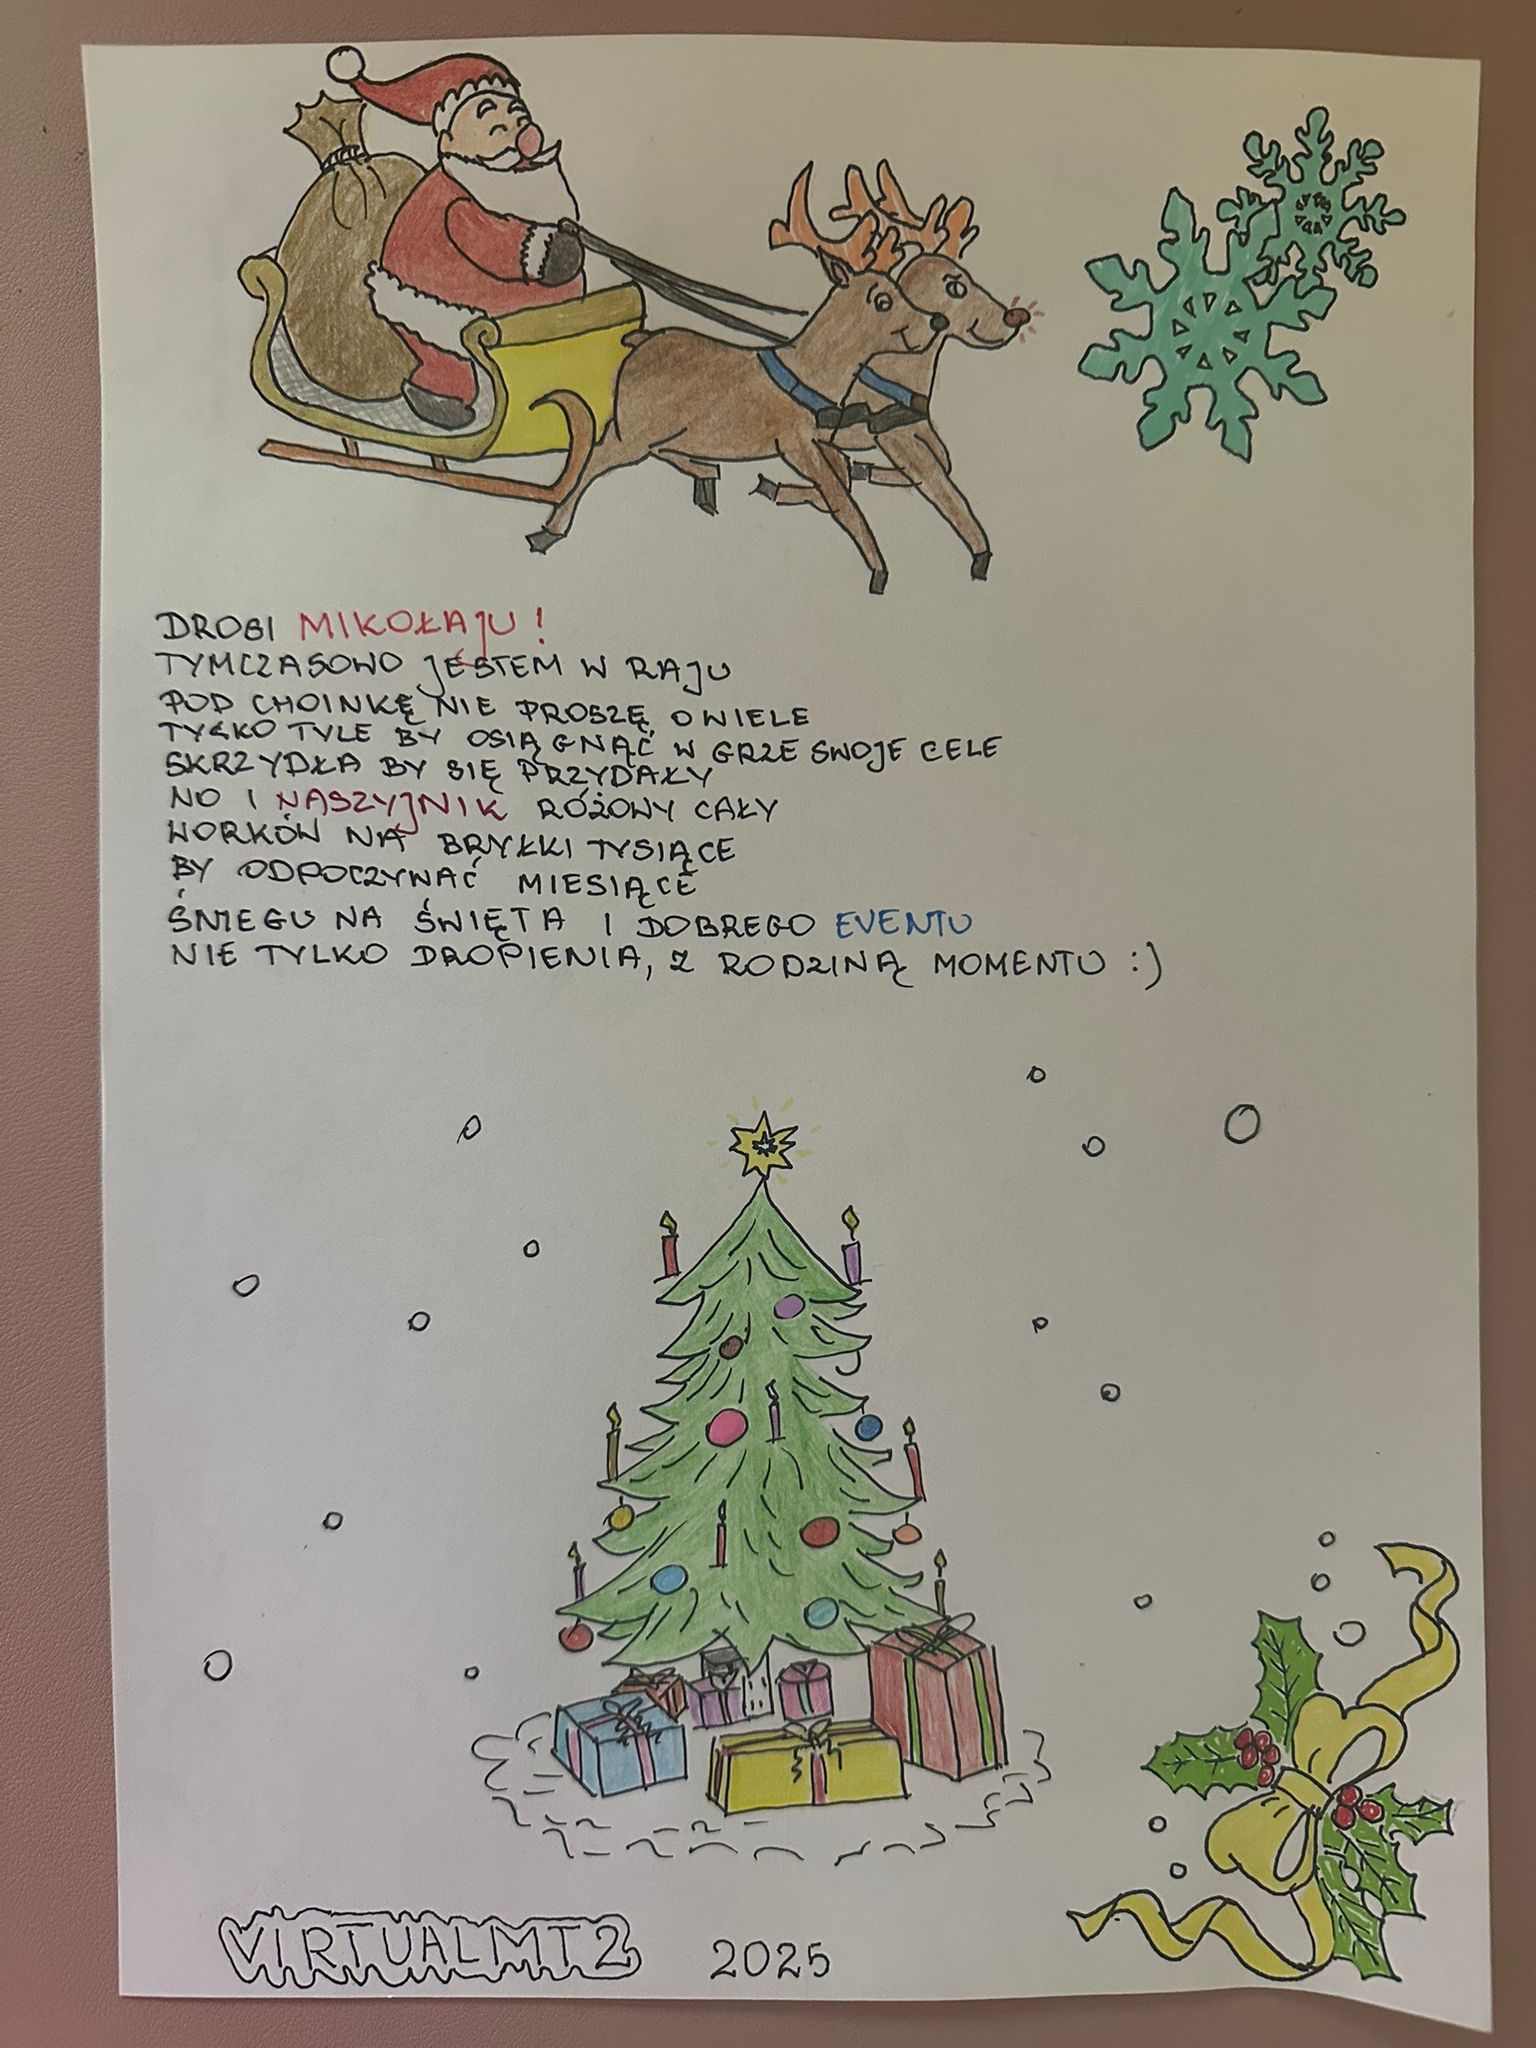 DROGI MIKOŁAJU!
TYMCZASOWO JESTEM W RAJU
POD CHOINKĘ NIE PROSZĘ O WIELE
TYLKO TYLE BY OSIĄGNĄĆ W GRZE SWOJE CELE
SKRZYDŁA BY SIĘ PRZYDAŁY
NO I NASZYJNIK RÓŻOWY CAŁY
WORKÓW NA BRYŁKI TYSIĄCE
BY ODPOCZYWAĆ MIESIĄCE
ŚNIEGU NA ŚWIĘTA I DOBREGO EVENTU
NIE TYLKO DROPIENIA, Z RODZINĄ MOMENTU :)
VIRTUALMT2 2025